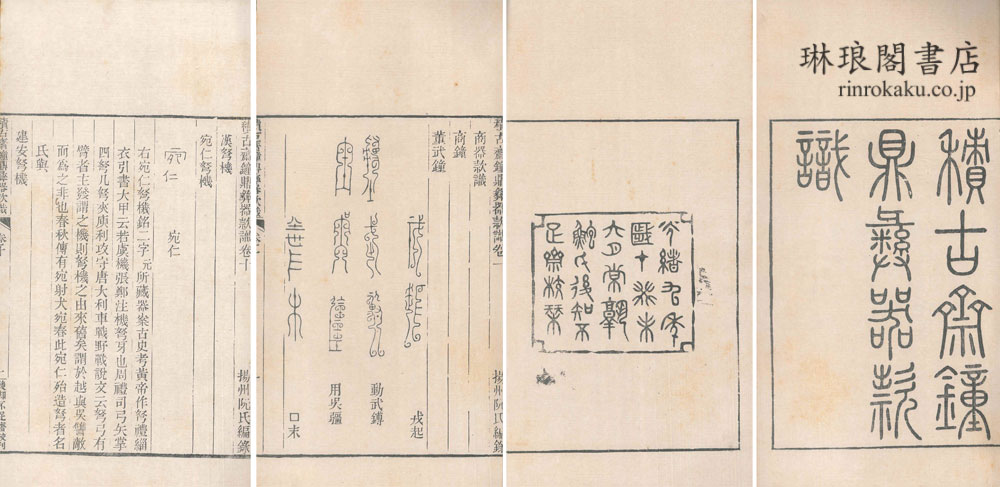 琳琅閣書店
rinrokaku.co.jp
積古齋鐘
鼎彝器款
識
光緒九年
歲在癸未
六月常熟
鮑氏後知不
足齋校栞
積古齋鐘鼎彝器款識卷一 揚州阮氏編錄
商器款識
商鐘
董武鐘
戎起
動武鎛
用吳疆
口末
積古齋鐘鼎彝器款識卷十 揚州阮氏編錄
漢弩機
宛仁弩機
宛仁 宛仁
右宛仁弩機銘二字元所藏器案古史考黃帝作弩禮緇
衣引書大甲云若虞機張鄭注機弩牙也周禮司弓矢掌
四弩凡弩夾庾利攻守唐大利車戰野戰說文云弩弓有
臂者主發謂之機則弩機之由來舊矣謂於越與吳讐敵
而為之非也春秋傳有宛射犬宛春此宛仁殆造弩者名
氏與
建安弩機